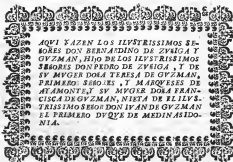 AQUI YAZEN LOS ILUSTRISSIMOS SE-
ÑORES DON BERNARDINO DE ZUÑIGA Y
GUZMAN, HIJO DE LOS ILUSTRISSIMOS
SEÑORES DON PEDRO DE ZUÑIGA, Y DE
SU MUGER DOÑA TERESA DE GUZMAN,
PRIMERO SEÑORES, Y MARQUESES DE
AYAMONTE, Y SU MUGER DOÑA FRAN-
CISCA DE GUZMAN, NIETA DE EL ILUS-
TRISSIMO SEÑOR DON IVAN DE GUZMAN
EL PRIMERO DUQUE DE MEDINASIDO-
NIA.